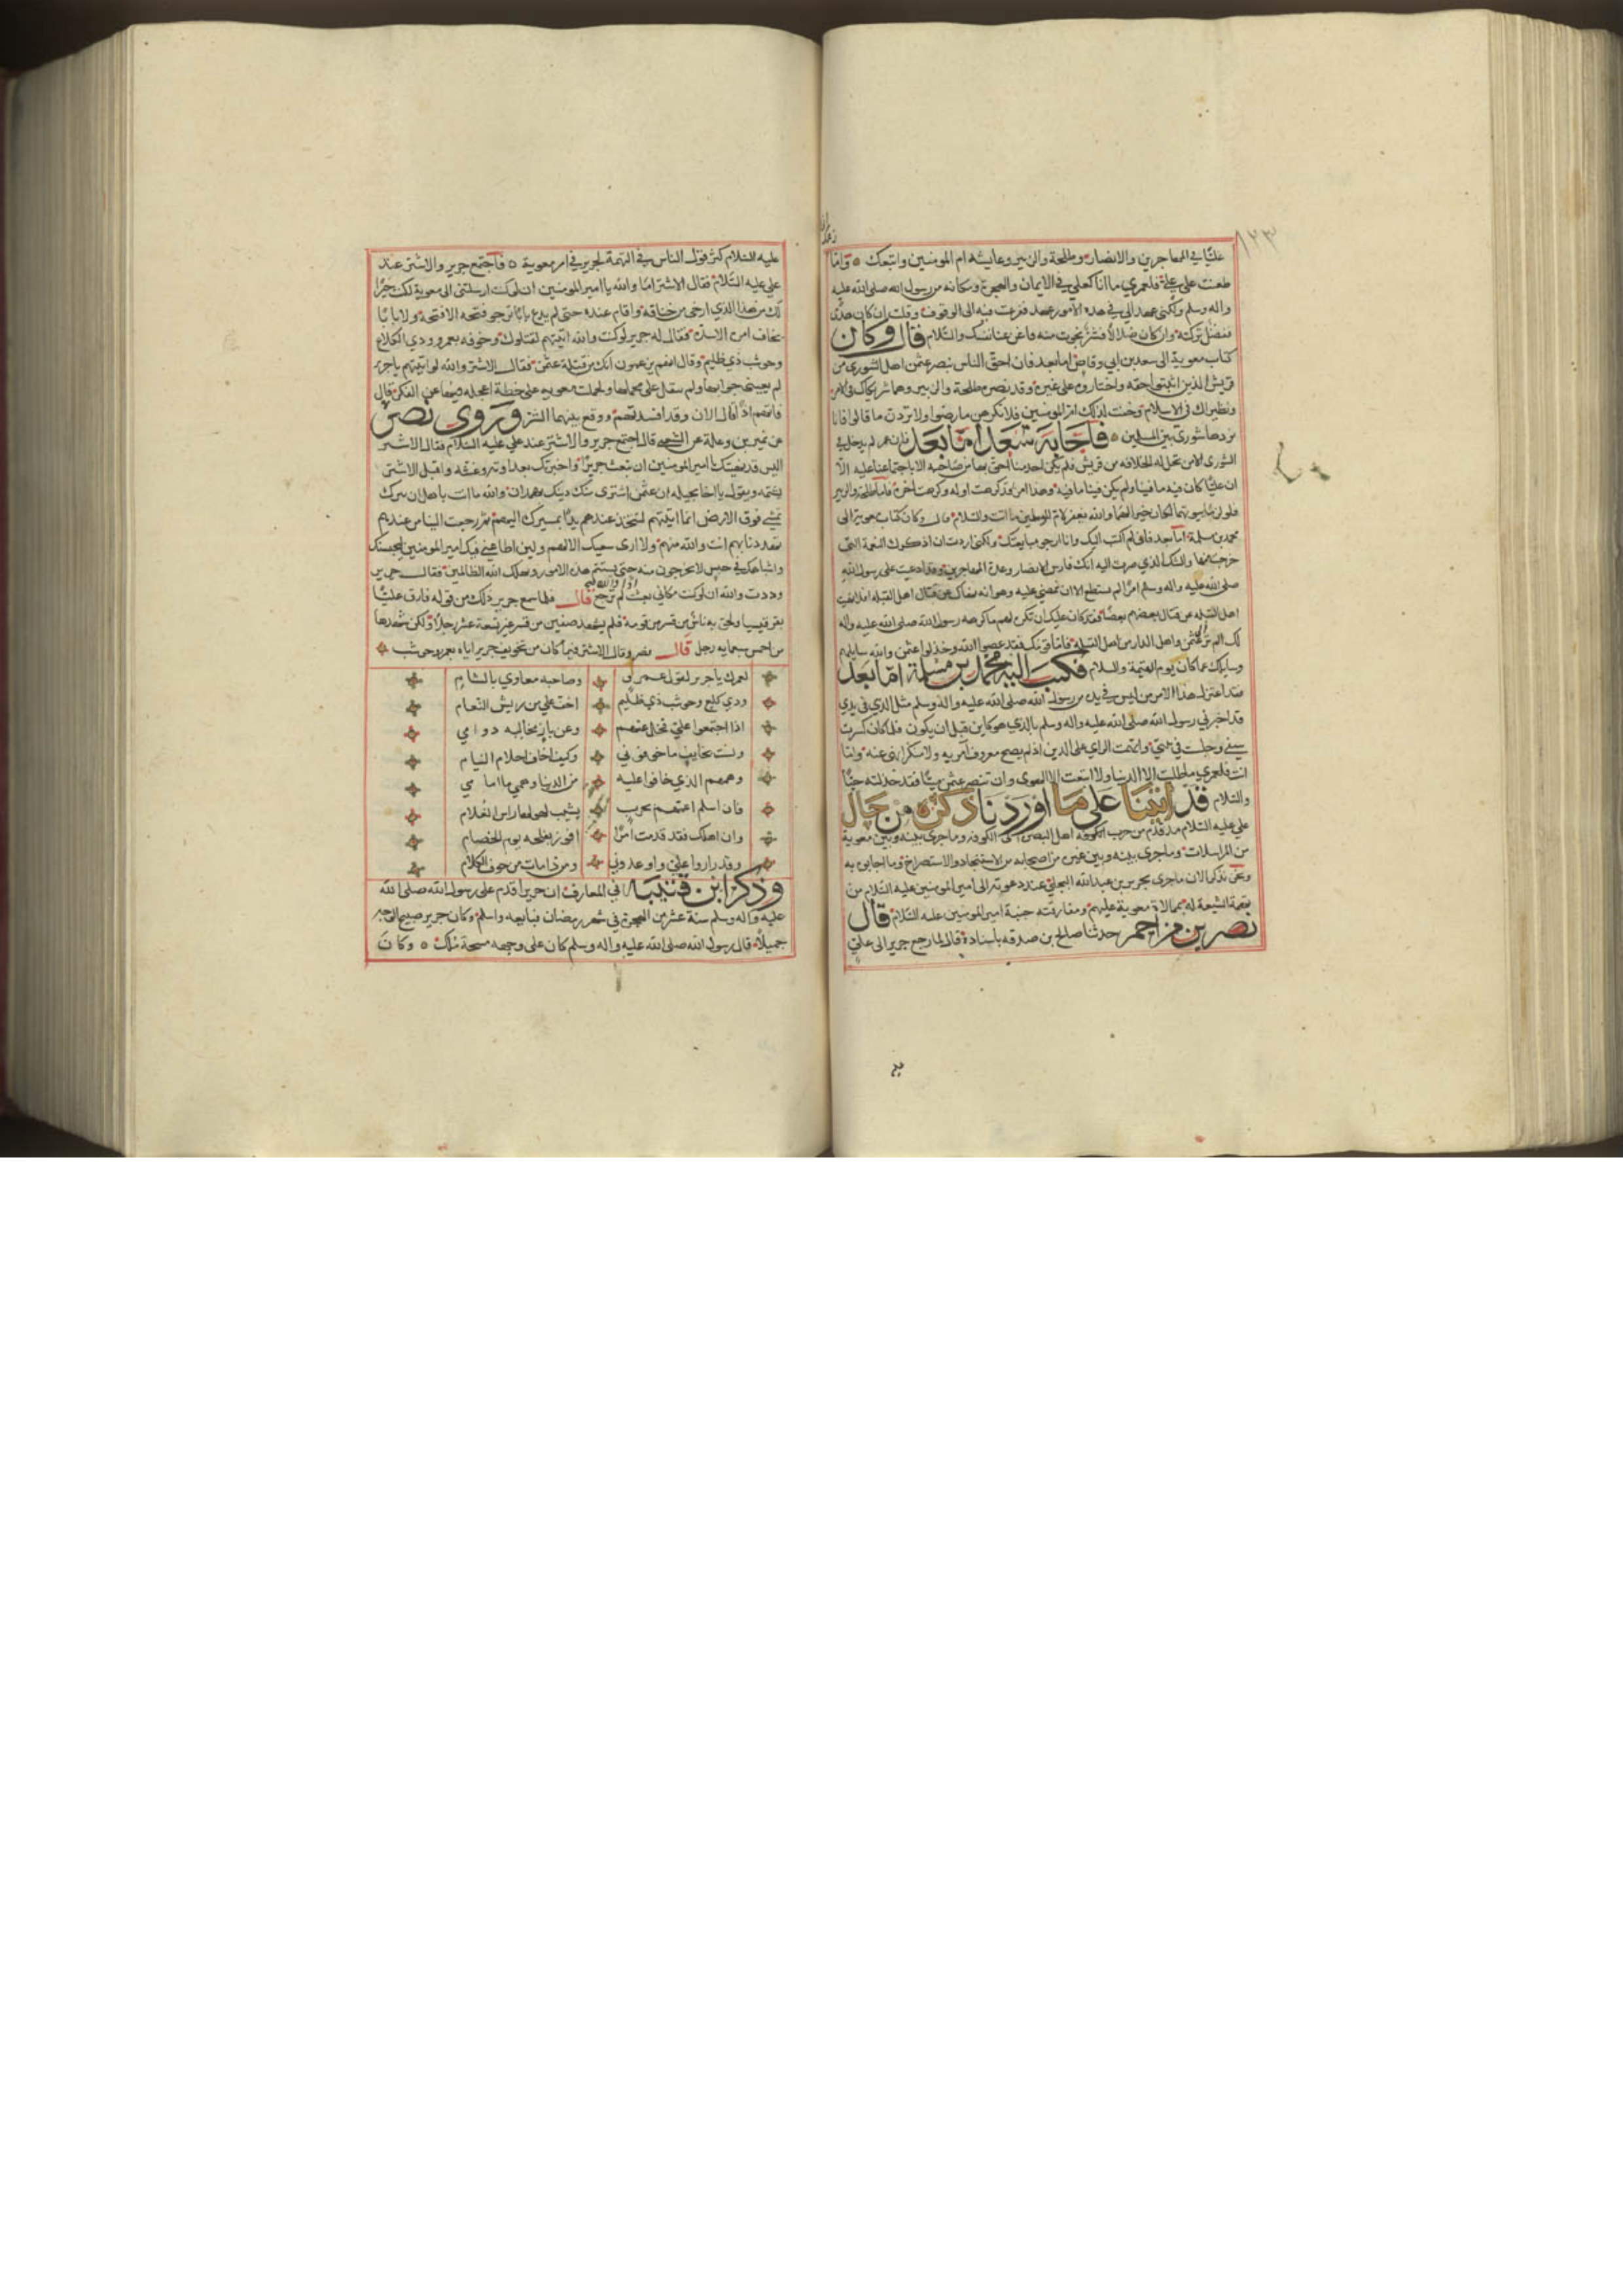 ١٢٣
عليًا في المهاجرين والانصار وطلحة والزبير وعايشه ام المومنين واتبعك ٥ واما
طعنت على علي فلعمري ما انا كعلي في الايمان والهجرة ومكانه من رسول الله صلى الله عليه
واله وسلم ولكني عهد الي في هذه الامور عهد ففزعت فيه الى الوقوف وقلت ان كان هدى
ففضل تركته وان كان ضلالا فشر نجوت منه فاغن عنا نفسك والسلام قال وكان
كتاب معوية الى سعد بن ابي وقاص اما بعد فان احق الناس بنصر عثمن اهل الشورى من
قريش الذين اثبتوا حقه واختاروه على غيره وقد نصره طلحة والزبير وهما شريكاك في الامر
ونظيراك في الاسلام وخفت لذلك ام المومنين فلا تكرهن ما رضوا ولا تردن ما قالوا فانا
نردها شورى بين المسلمين ٥ فاجابه سعد اما بعد فان عمر لم يدخل في
الشورى الا من تحل له الخلافه من قريش فلم يكن احد منا احق بها من صاحبه الا باجتماعنا عليه الا
ان عليًا كان فيه ما فينا ولم يكن فينا ما فيه وهذا امر قد كرهت اوله وكرهت اخره فاما طلحة والزبير
فلو لزما بيوتهما لكان خيرا لهما والله يغفر لام المومنين ما اتت والسلام قال وكان كتاب معوية الى
محمد بن مسلمة اما بعد فاني لم اكتب اليك وانا ارجو مبايعتك ولكني اردت ان اذكرك النعمة التي
خرجت منها والشك الذي صرت اليه انك فارس الانصار وعدة المهاجرين وقد ادعيت على رسول الله
صلى الله عليه واله وسلم امرًا لم تستطع الا ان تمضي عليه وهو انه نهاك عن قتال اهل القبله افلا نهيت
اهل القبله عن قتال بعضهم بعضًا فقد كان عليك ان تكره لهم ما كره رسول الله صلى الله عليه واله
لك الم تر عثمن واهل الدار من اهل القبلة فاما قومك فقد عصوا الله وخذلوا عثمن والله سايلهم
وسايلك عما كان يوم القيمة والسلام فكتب اليه محمد بن مسلمة اما بعد
فقد اعتزل هذا الامر من ليس في يديه من رسول الله صلى الله عليه واله وسلم مثل الذي في يدي
قد اخبرني رسول الله صلى الله عليه واله وسلم بالذي هو كاين قبل ان يكون فلما كان كسرت
سيفي وجلست في بيتي واتهمت الراي على الدين اذ لم يصح معروف امر به ولا منكر انهى عنه واما
انت فلعمري ما طلبت الا الدنيا ولا اتبعت الا الهوى وان تنصر عثمن ميتًا فقد خذلته حيًا
والسلام قد اتينا على ما اوردنا ذكره من حال
علي عليه السلام مذ قدم من حرب اهل البصره الى الكوفه وما جرى بينه وبين معوية
من المراسلات وما جرى بينه وبين غيره من اصحابه من الاستنجاد والاستصراخ وما اجابوه به
ونحن نذكر الان ما جرى بجرير بن عبد الله البجلي عند دعوته الى امير المومنين عليه السلام من
تهمة الشيعة له بممالاة معوية عليهم ومفارقته جنبة امير المومنين عليه السلام قال
نصر بن مزاحم حدثنا صالح بن صدقه باسناده قال لما رجع جرير الى علي
عليه السلام كثر قول الناس في التهمة لجرير في امر معوية ٥ فاجتمع جرير والاشتر عند
علي عليه السلام فقال الاشتر اما والله يا امير المومنين ان لو كنت ارسلتني الى معوية لكنت خيرًا
لك من هذا الذي ارخى من خناقه واقام عنده حتى لم يدع بابًا نرجو فتحه الا فتحه ولا بابًا
يخاف امره الا سده فقال له جرير لو كنت والله اتيتهم لقتلوك وخوفه بعمرو وذي الكلاع
وحوشب ذي ظليم وقال انهم يزعمون انك من قتلة عثمن فقال الاشتر والله لو اتيتهم يا جرير
لم يعيني جوابها ولم يثقل علي محملها ولحملت معويه على خطة اعجله فيها عن الفكر قال
فاتهم اذًا قال الان وقد افسدتهم ووقع بينهما الشر وروى نصر
عن نمير بن وعلة عن الشعبي قال اجتمع جرير والاشتر عند علي عليه السلام فقال الاشتر
اليس قد نهيتك يا امير المومنين ان تبعث جريرًا واخبرتك بعداوته وغشه واقبل الاشتر
يشتمه ويقول يا اخا بجيله ان عثمن اشترى منك دينك بهمدان والله ما انت باهل ان تترك
تمشي فوق الارض انما اتيتهم لتتخذ عندهم يدًا بمسيرك اليهم ثم رجعت الينا من عندهم
تهددنا بهم انت والله منهم ولا ارى سعيك الا لهم ولين اطاعني فيك امير المومنين ليحبسنك
واشباهك في حبس لا تخرجون منه حتى تستتم هذه الامور ويهلك الله الظالمين فقال جرير
وددت والله ان لو كنت مكاني بعثت اذًا والله لم ترجع قال فلما سمع جرير ذلك من قوله فارق عليًا
بقرقيسيا ولحق به ناس من قسر من قومه فلم يشهد صفين من قسر غير تسعة عشر رجلًا ولكن شهدها
من احمس سبمايه رجل قال نصر وقال الاشتر فيما كان من تخويف جرير اياه بعمرو وحوشب
لعمرك يا جرير لقول عمرو وصاحبه معاوي بالشام
وذي كلع وحوشب ذي ظليم اخف علي من ريش النعام
اذا اجتمعوا علي فخل عنهم وعن باز مخالبه دوامي
ولست بخايف ما خوفوني وكيف اخاف احلام النيام
وهمهم الذي خافوا عليه من الدنيا وهمي ما امامي
فان اسلم اعمهم بحرب يشيب لهولها راس الغلام
وان اهلك فقد قدمت امرًا افوز بفلجه يوم الخصام
وقد زاروا علي واوعدوني ومن ذا مات من خوف الكلام
وذكر ابن قتيبه في المعارف ان جريرا قدم على رسول الله صلى الله
عليه واله وسلم سنة عشر من الهجرة في شهر رمضان فبايعه واسلم وكان جرير صبيح الوجه
جميلًا قال رسول الله صلى الله عليه واله وسلم كان على وجهه مسحة ملك ٥ وكان